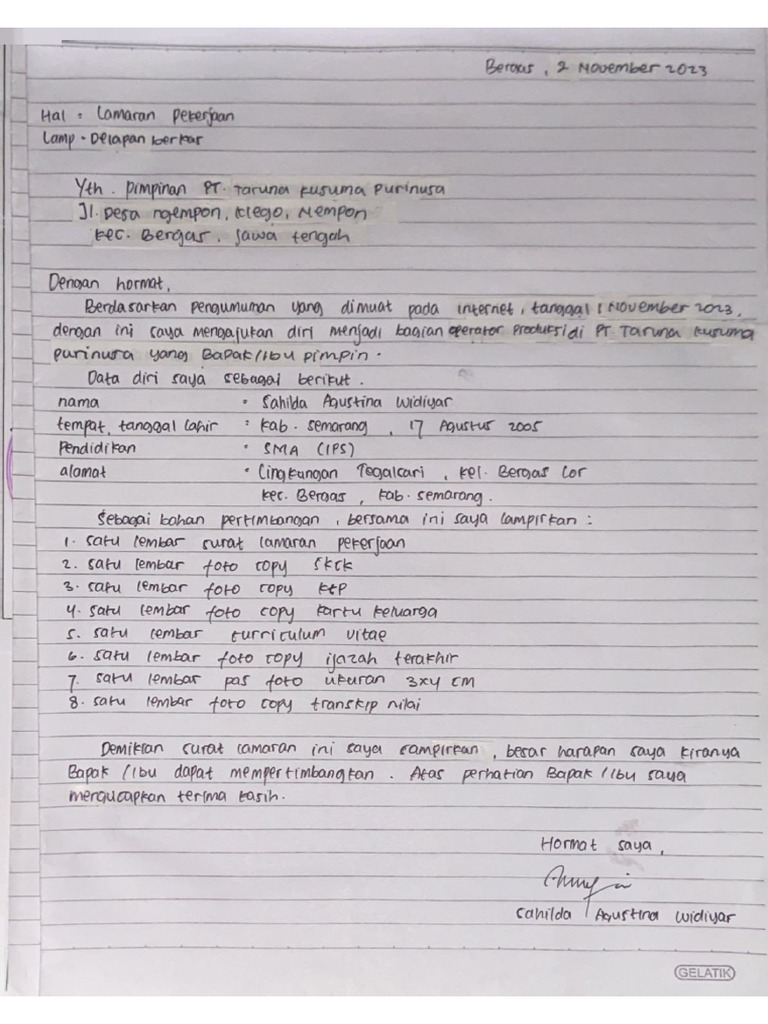 Bergas, 2 November 2023
Hal : Lamaran Pekerjaan
Lamp : Delapan berkas
Yth. Pimpinan PT. Taruna Kusuma Purinusa
Jl. Desa ngempon, Klego, Nempon
Kec. Bergas, Jawa tengah
Dengan hormat,
Berdasarkan pengumuman yang dimuat pada internet, tanggal 1 November 2023,
dengan ini saya mengajukan diri menjadi bagian operator Produksi di PT Taruna Kusuma
purinusa yang Bapak/Ibu pimpin.
Data diri saya sebagai berikut.
nama : Sahilda Agustina Widiyar
tempat, tanggal lahir : Kab. Semarang, 17 Agustus 2005
Pendidikan : SMA (IPS)
alamat : Lingkungan Tegalsari, Kel. Bergas Lor
Kec. Bergas, Kab. Semarang.
Sebagai bahan pertimbangan, bersama ini saya lampirkan :
1. satu lembar surat lamaran pekerjaan
2. satu lembar foto copy SKCK
3. satu lembar foto copy KTP
4. satu lembar foto copy kartu keluarga
5. satu lembar curriculum vitae
6. satu lembar foto copy ijazah terakhir
7. satu lembar pas foto ukuran 3x4 cm
8. satu lembar foto copy transkip nilai
Demikian surat lamaran ini saya sampirkan, besar harapan saya kiranya
Bapak /Ibu dapat mempertimbangkan. Atas perhatian Bapak /Ibu saya
mengucapkan terima kasih.
Hormat saya,
Sahilda Agustina Widiyar
GELATIK